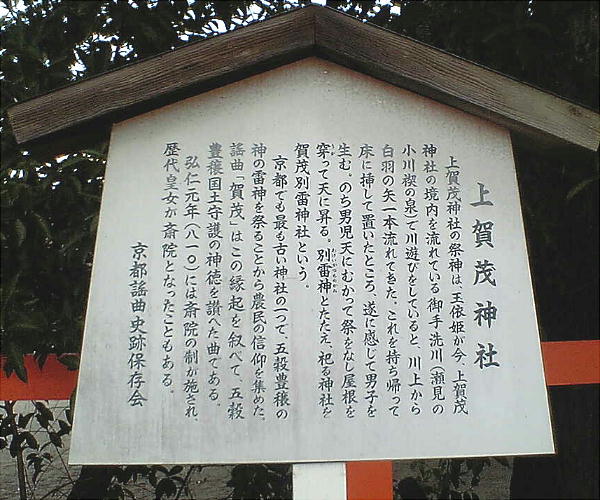 上賀茂神社
上賀茂神社の祭神は、玉依姫が今、上賀茂
神社の境内を流れている御手洗川(瀬見の
小川楔の泉)で川遊びをしていると、川上から
白羽の矢一本流れてきた。これを持ち帰って
床に挿して置いたところ、遂に感じて男子を
生む。のち男児天にむかって祭をなし屋根を
穿って天に昇る。別雷神とたたえ、祀る神社を
賀茂別雷神社という。
京都でも最も古い神社の一つで、五穀豊穣の
神の雷神を祭ることから農民の信仰を集めた。
謡曲「賀茂」はこの縁起を叙べて、五穀
豊穣国土守護の神徳を讃へた曲である。
弘仁元年(八一〇)には斎院の制が施され、
歴代皇女が斎院となったこともある。
京都謡曲史跡保存会